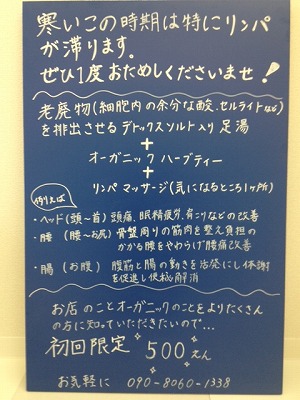 寒いこの時期は特にリンパ
が滞ります。
ぜひ1度おためしくださいませ!
老廃物(細胞内の余分な酸、セルライトなど)
を排出させるデトックスソルト入り足湯
+
オーガニックハーブティー
+
リンパマッサージ(気になるところ1ヶ所)
例えば
・ヘッド(頭~首)頭痛、眼精疲労、肩こりなどの改善
・腰(腰~お尻)骨盤周りの筋肉を整え負担の
かかる腰をやわらげ腰痛改善
・腸(お腹)腹筋と腸の動きを活発にし体謝
を促進し便秘解消
お店のことオーガニックのことをよりたくさん
の方に知っていただきたいので...
初回限定 500えん
お気軽に 090-8060-1338